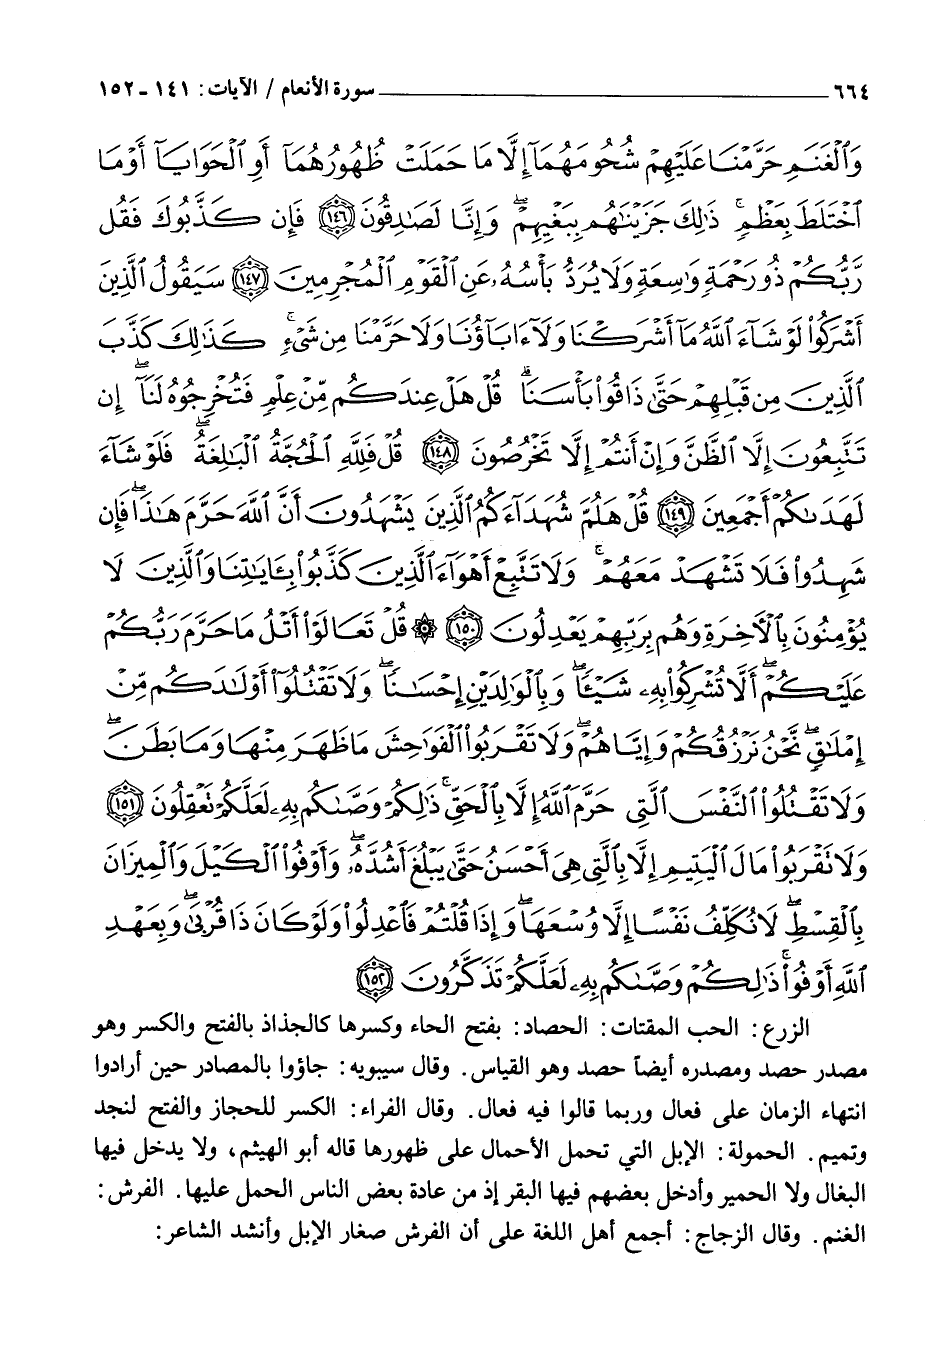 ٦٦٤ ــــــــ سورة الأنعام / الآيات: ١٤١ ـ ١٥٢
وَٱلْغَنَمِ حَرَّمْنَا عَلَيْهِمْ شُحُومَهُمَآ إِلَّا مَا حَمَلَتْ ظُهُورُهُمَآ أَوِ ٱلْحَوَايَآ أَوْ مَا
ٱخْتَلَطَ بِعَظْمٍۚ ذَٰلِكَ جَزَيْنَٰهُم بِبَغْيِهِمْۖ وَإِنَّا لَصَٰدِقُونَ ﴿١٤٦﴾ فَإِن كَذَّبُوكَ فَقُل
رَّبُّكُمْ ذُو رَحْمَةٍ وَٰسِعَةٍ وَلَا يُرَدُّ بَأْسُهُۥ عَنِ ٱلْقَوْمِ ٱلْمُجْرِمِينَ ﴿١٤٧﴾ سَيَقُولُ ٱلَّذِينَ
أَشْرَكُوا۟ لَوْ شَآءَ ٱللَّهُ مَآ أَشْرَكْنَا وَلَآ ءَابَآؤُنَا وَلَا حَرَّمْنَا مِن شَىْءٍۚ كَذَٰلِكَ كَذَّبَ
ٱلَّذِينَ مِن قَبْلِهِمْ حَتَّىٰ ذَاقُوا۟ بَأْسَنَاۗ قُلْ هَلْ عِندَكُم مِّنْ عِلْمٍ فَتُخْرِجُوهُ لَنَآۖ إِن
تَتَّبِعُونَ إِلَّا ٱلظَّنَّ وَإِنْ أَنتُمْ إِلَّا تَخْرُصُونَ ﴿١٤٨﴾ قُلْ فَلِلَّهِ ٱلْحُجَّةُ ٱلْبَٰلِغَةُۖ فَلَوْ شَآءَ
لَهَدَىٰكُمْ أَجْمَعِينَ ﴿١٤٩﴾ قُلْ هَلُمَّ شُهَدَآءَكُمُ ٱلَّذِينَ يَشْهَدُونَ أَنَّ ٱللَّهَ حَرَّمَ هَٰذَاۖ فَإِن
شَهِدُوا۟ فَلَا تَشْهَدْ مَعَهُمْۚ وَلَا تَتَّبِعْ أَهْوَآءَ ٱلَّذِينَ كَذَّبُوا۟ بِـَٔايَٰتِنَا وَٱلَّذِينَ لَا
يُؤْمِنُونَ بِٱلْأٓخِرَةِ وَهُم بِرَبِّهِمْ يَعْدِلُونَ ﴿١٥٠﴾ ۞ قُلْ تَعَالَوْا۟ أَتْلُ مَا حَرَّمَ رَبُّكُمْ
عَلَيْكُمْۖ أَلَّا تُشْرِكُوا۟ بِهِۦ شَيْـًٔاۖ وَبِٱلْوَٰلِدَيْنِ إِحْسَٰنًاۖ وَلَا تَقْتُلُوٓا۟ أَوْلَٰدَكُم مِّنْ
إِمْلَٰقٍۖ نَّحْنُ نَرْزُقُكُمْ وَإِيَّاهُمْۖ وَلَا تَقْرَبُوا۟ ٱلْفَوَٰحِشَ مَا ظَهَرَ مِنْهَا وَمَا بَطَنَۖ
وَلَا تَقْتُلُوا۟ ٱلنَّفْسَ ٱلَّتِى حَرَّمَ ٱللَّهُ إِلَّا بِٱلْحَقِّۚ ذَٰلِكُمْ وَصَّىٰكُم بِهِۦ لَعَلَّكُمْ تَعْقِلُونَ ﴿١٥١﴾
وَلَا تَقْرَبُوا۟ مَالَ ٱلْيَتِيمِ إِلَّا بِٱلَّتِى هِىَ أَحْسَنُ حَتَّىٰ يَبْلُغَ أَشُدَّهُۥۖ وَأَوْفُوا۟ ٱلْكَيْلَ وَٱلْمِيزَانَ
بِٱلْقِسْطِۖ لَا نُكَلِّفُ نَفْسًا إِلَّا وُسْعَهَاۖ وَإِذَا قُلْتُمْ فَٱعْدِلُوا۟ وَلَوْ كَانَ ذَا قُرْبَىٰۖ وَبِعَهْدِ
ٱللَّهِ أَوْفُوا۟ۚ ذَٰلِكُمْ وَصَّىٰكُم بِهِۦ لَعَلَّكُمْ تَذَكَّرُونَ ﴿١٥٢﴾
الزرع: الحب المقتات: الحصاد: بفتح الحاء وكسرها كالجذاذ بالفتح والكسر وهو
مصدر حصد ومصدره أيضاً حصد وهو القياس. وقال سيبويه: جاؤوا بالمصادر حين أرادوا
انتهاء الزمان على فعال وربما قالوا فيه فعال. وقال الفراء: الكسر للحجاز والفتح لنجد
وتميم. الحمولة: الإبل التي تحمل الأحمال على ظهورها قاله أبو الهيثم، ولا يدخل فيها
البغال ولا الحمير وأدخل بعضهم فيها البقر إذ من عادة بعض الناس الحمل عليها. الفرش:
الغنم. وقال الزجاج: أجمع أهل اللغة على أن الفرش صغار الإبل وأنشد الشاعر: